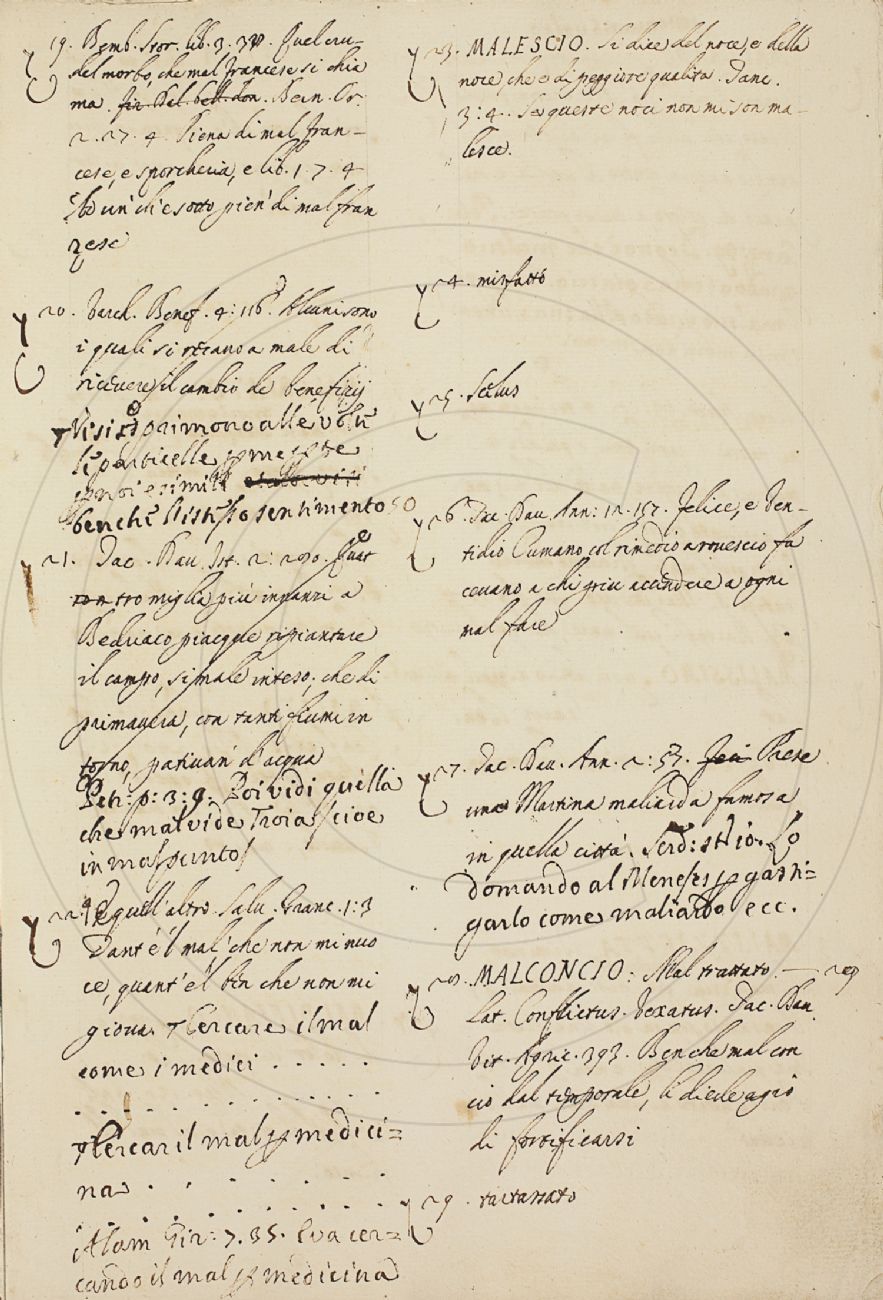 19. Bemb. Stor. lib. 3. 38. Quel cru-
del morbo, che mal francese si chia
ma. Bern. Or.
2. 27. 4. Piena di mal fran-
cese, e sporcheria, e lib. 1. 7. 4
un' di e sotto pien' di mal fran
zese
20. Varch. Benef. 4: 116. Alcuni sono
i quali si recano a male di
ricevere il cambio de' benefizij
Visi si primono alle volte
le particelle per me per te
per noi e simili
benche l'istesso sentimento
21. Tac. Dav. Ist. 2: 290. Quat
tro miglia più innanzi a
Bedriaco piacque ripiantare
il campo, si male inteso, che di
primavera, con tanti fiumi in
torno, pativan' d'acqua
Petr: p: 3: 9. Poi vidi quella
che mal vide Troia / cioe
in mal punto /
22. E quell'altro. Salv. Granc. 1: 3
Tant' è 'l mal, che non mi nuo
ce, quant' è 'l ben che non mi
giova. Cercare il mal
come i medici . . . . .
. . . . . . . . . . . .
Cercar il mal per medici=
na . . . . . . . .
. . . . . . . . . . .
Alam Gir: 7. 35. E va cer=
cando il mal per medicina
23. MALESCIO. Si dice del noce, e della
noce, che e di peggiore qualita. Panc.
3: 4. Se queste noci non mi son ma-
lesce.
24. misfatto
25. Scelus
26. Tac. Dav. Ann: 12. 157. Felice, e Ven-
tidio Cumano, col rimedio a rovescio fa
cevano a chi più accendere a ogni
mal fare
27. Tac. Dav. Ann. 2: 57. Paese
una Martina maliarda famosa
in quella città. Serd: st: 10. Lo
domando al Meneses per gasti=
garlo come maliardo ecc.
28. MALCONCIO: Mal trattato. — 29
Lat. Conflictus. Vexatus. Tac. Dav.
Vit. Agric. 393. Benche mal con
cio dal temporale, li diede agio
di fortificarsi
29. tartassato